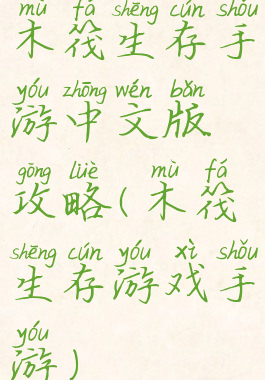 mù fá shēng cún shǒu
木筏生存手
yóu zhōng wén bǎn
游中文版
gōng lüè mù fá
攻略(木筏
shēng cún yóu xì shǒu
生存游戏手
yóu
游)